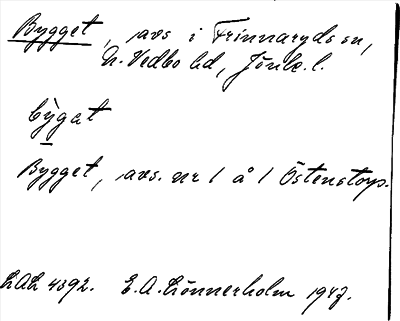 Bygget, avs i Frinnaryds sn,
N. Vedbo hd, Jönk. l.
bỳgat
Bygget, avs. nr 1 å 1 Östenstorp.
LAL 4392. E. A. Lönnerholm 1947.